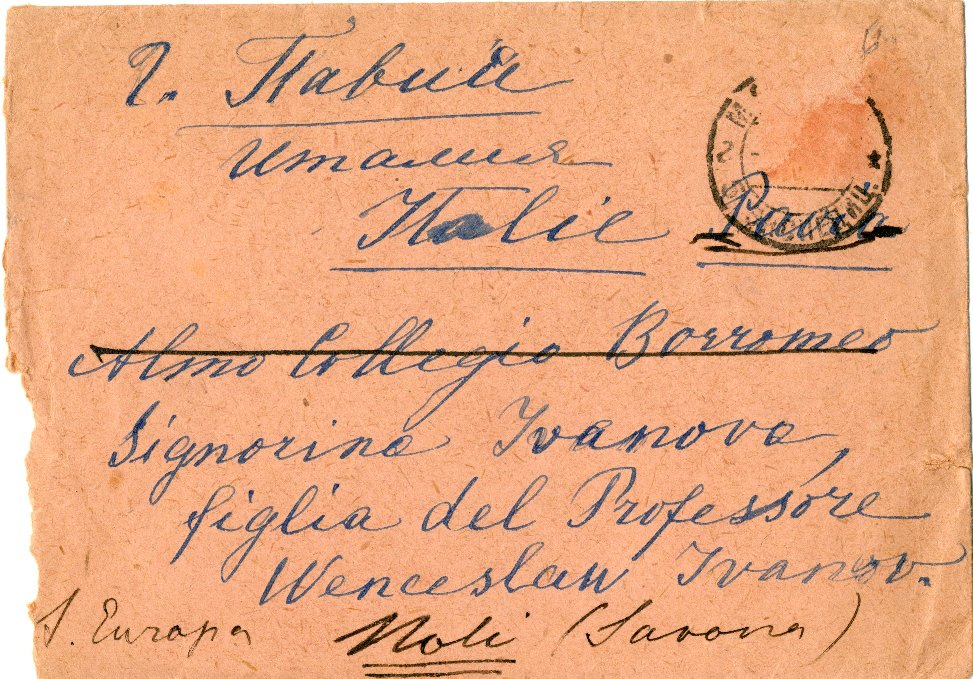 г. Павия
Италия
Italie Pavia
Almo Collegio Borromeo
Signorina Ivanova,
figlia del Professore
Wenceslaw Ivanov.
Noli (Savona)